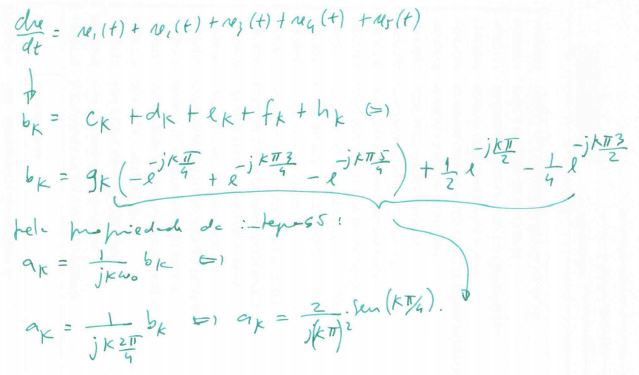 dx/dt = x₁(t) + x₂(t) + x₃(t) + x₄(t) + x₅(t)
↓
b_K = c_K + d_K + e_K + f_K + h_K ⇔
b_K = g_K (-e^{-jKπ/4} + e^{-jKπ3/4} - e^{-jKπ5/4}) + 1/2 e^{-jKπ/2} - 1/4 e^{-jKπ3/2}
pela propriedade da :
a_K = 1/(jKω₀) b_K ⇔
a_K = 1/(jK 2π/4) b_K ⇔ a_K = 2/(j(Kπ)²) · sen(Kπ/4).